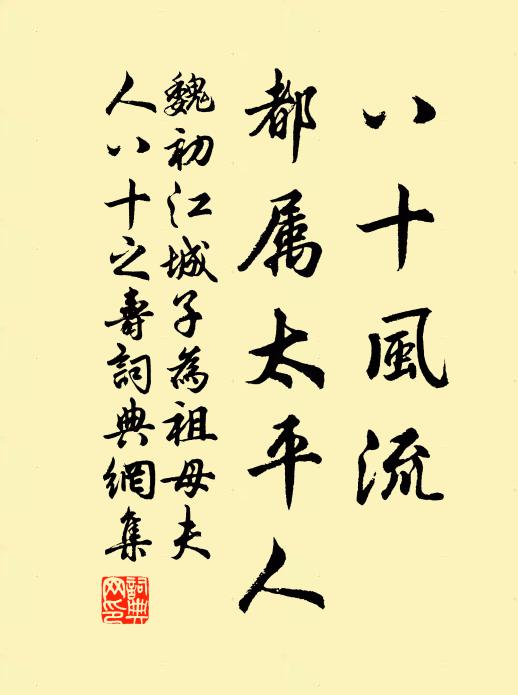 八十風流
都属太平人
魏初江城子為祖母夫
人八十之壽詞典網集
詞典网印